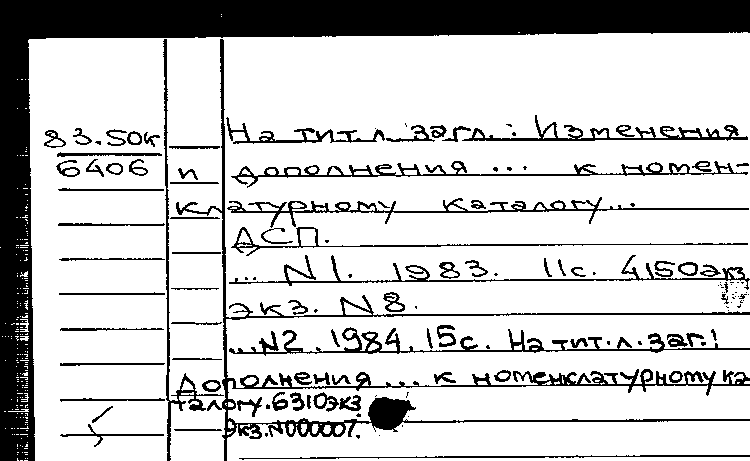 83.50к
6406
На тит.л. загл.: Изменения
и дополнения ... к номен-
клатурному каталогу...
ДСП.
... N1. 1983. 11с. 4150экз
экз. N8.
...N2. 1984. 15с. На тит.л.заг.!
Дополнения ... к номенклатурному ка
талогу. 6310экз.
Экз.N000007.
5